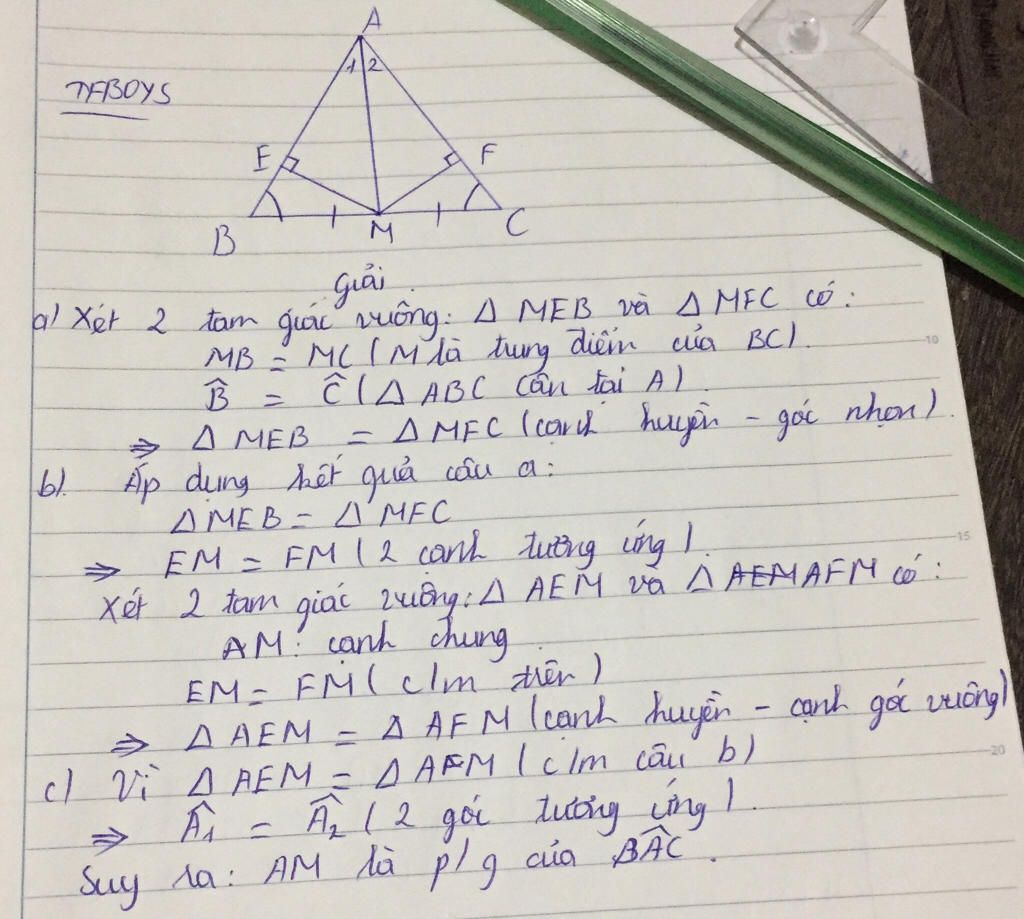 TFBOYS
A
1 2
E F
B M C
Giải.
a) Xét 2 tam giác vuông: Δ MEB và Δ MFC có:
MB = MC (M là trung điểm của BC).
B̂ = Ĉ (Δ ABC cân tại A)
⇒ Δ MEB = Δ MFC (cạnh huyền - góc nhọn).
b) Áp dụng kết quả câu a:
Δ MEB = Δ MFC
⇒ EM = FM (2 cạnh tương ứng).
Xét 2 tam giác vuông: Δ AEM và Δ AEM AFM có:
AM: cạnh chung
EM = FM (c/m trên)
⇒ Δ AEM = Δ AFM (cạnh huyền - cạnh góc vuông)
c) Vì Δ AEM = Δ AFM (c/m câu b)
⇒ Â1 = Â2 (2 góc tương ứng).
Suy ra: AM là p/g của BÂC.
10
15
20